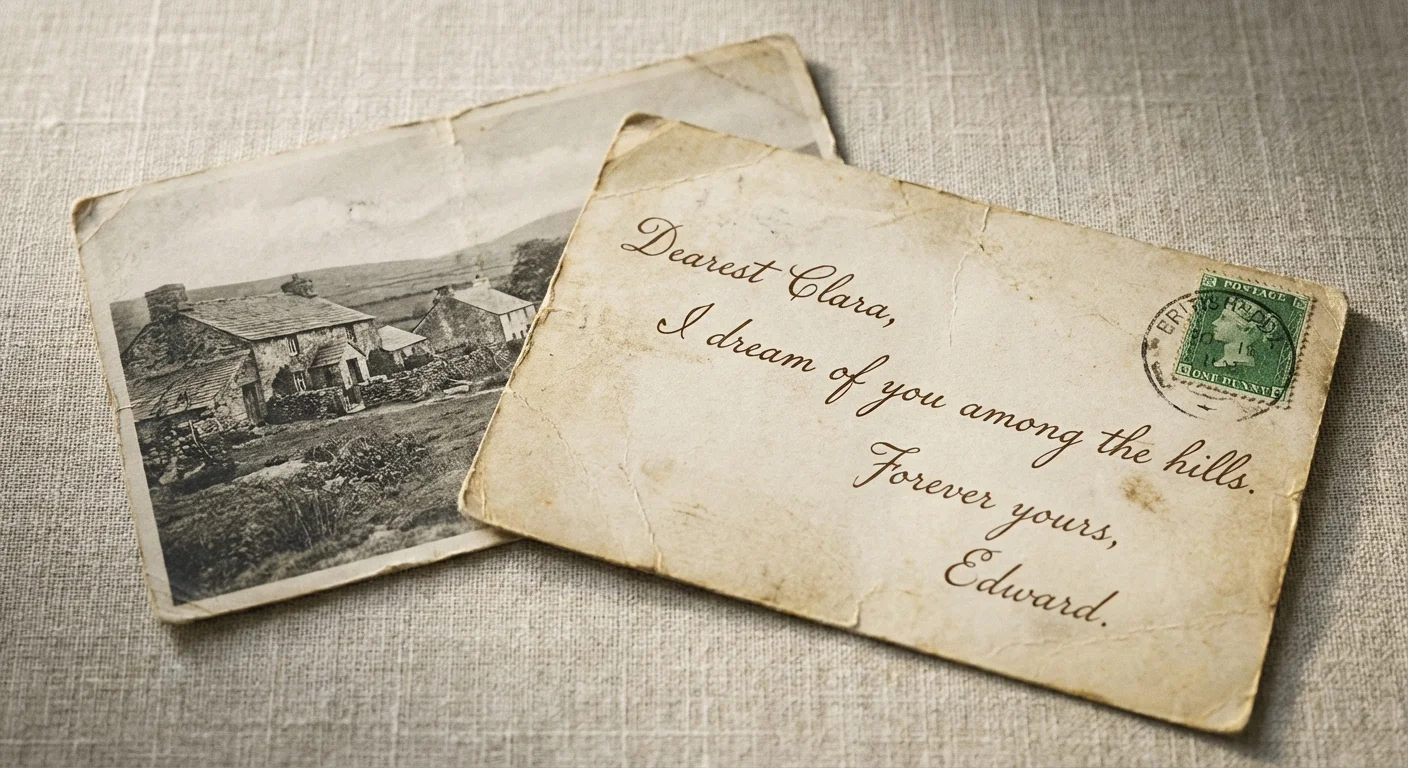 Dearest Clara,
I dream of you among the hills.
Forever yours,
Edward.
POSTAGE
ONE PENNY